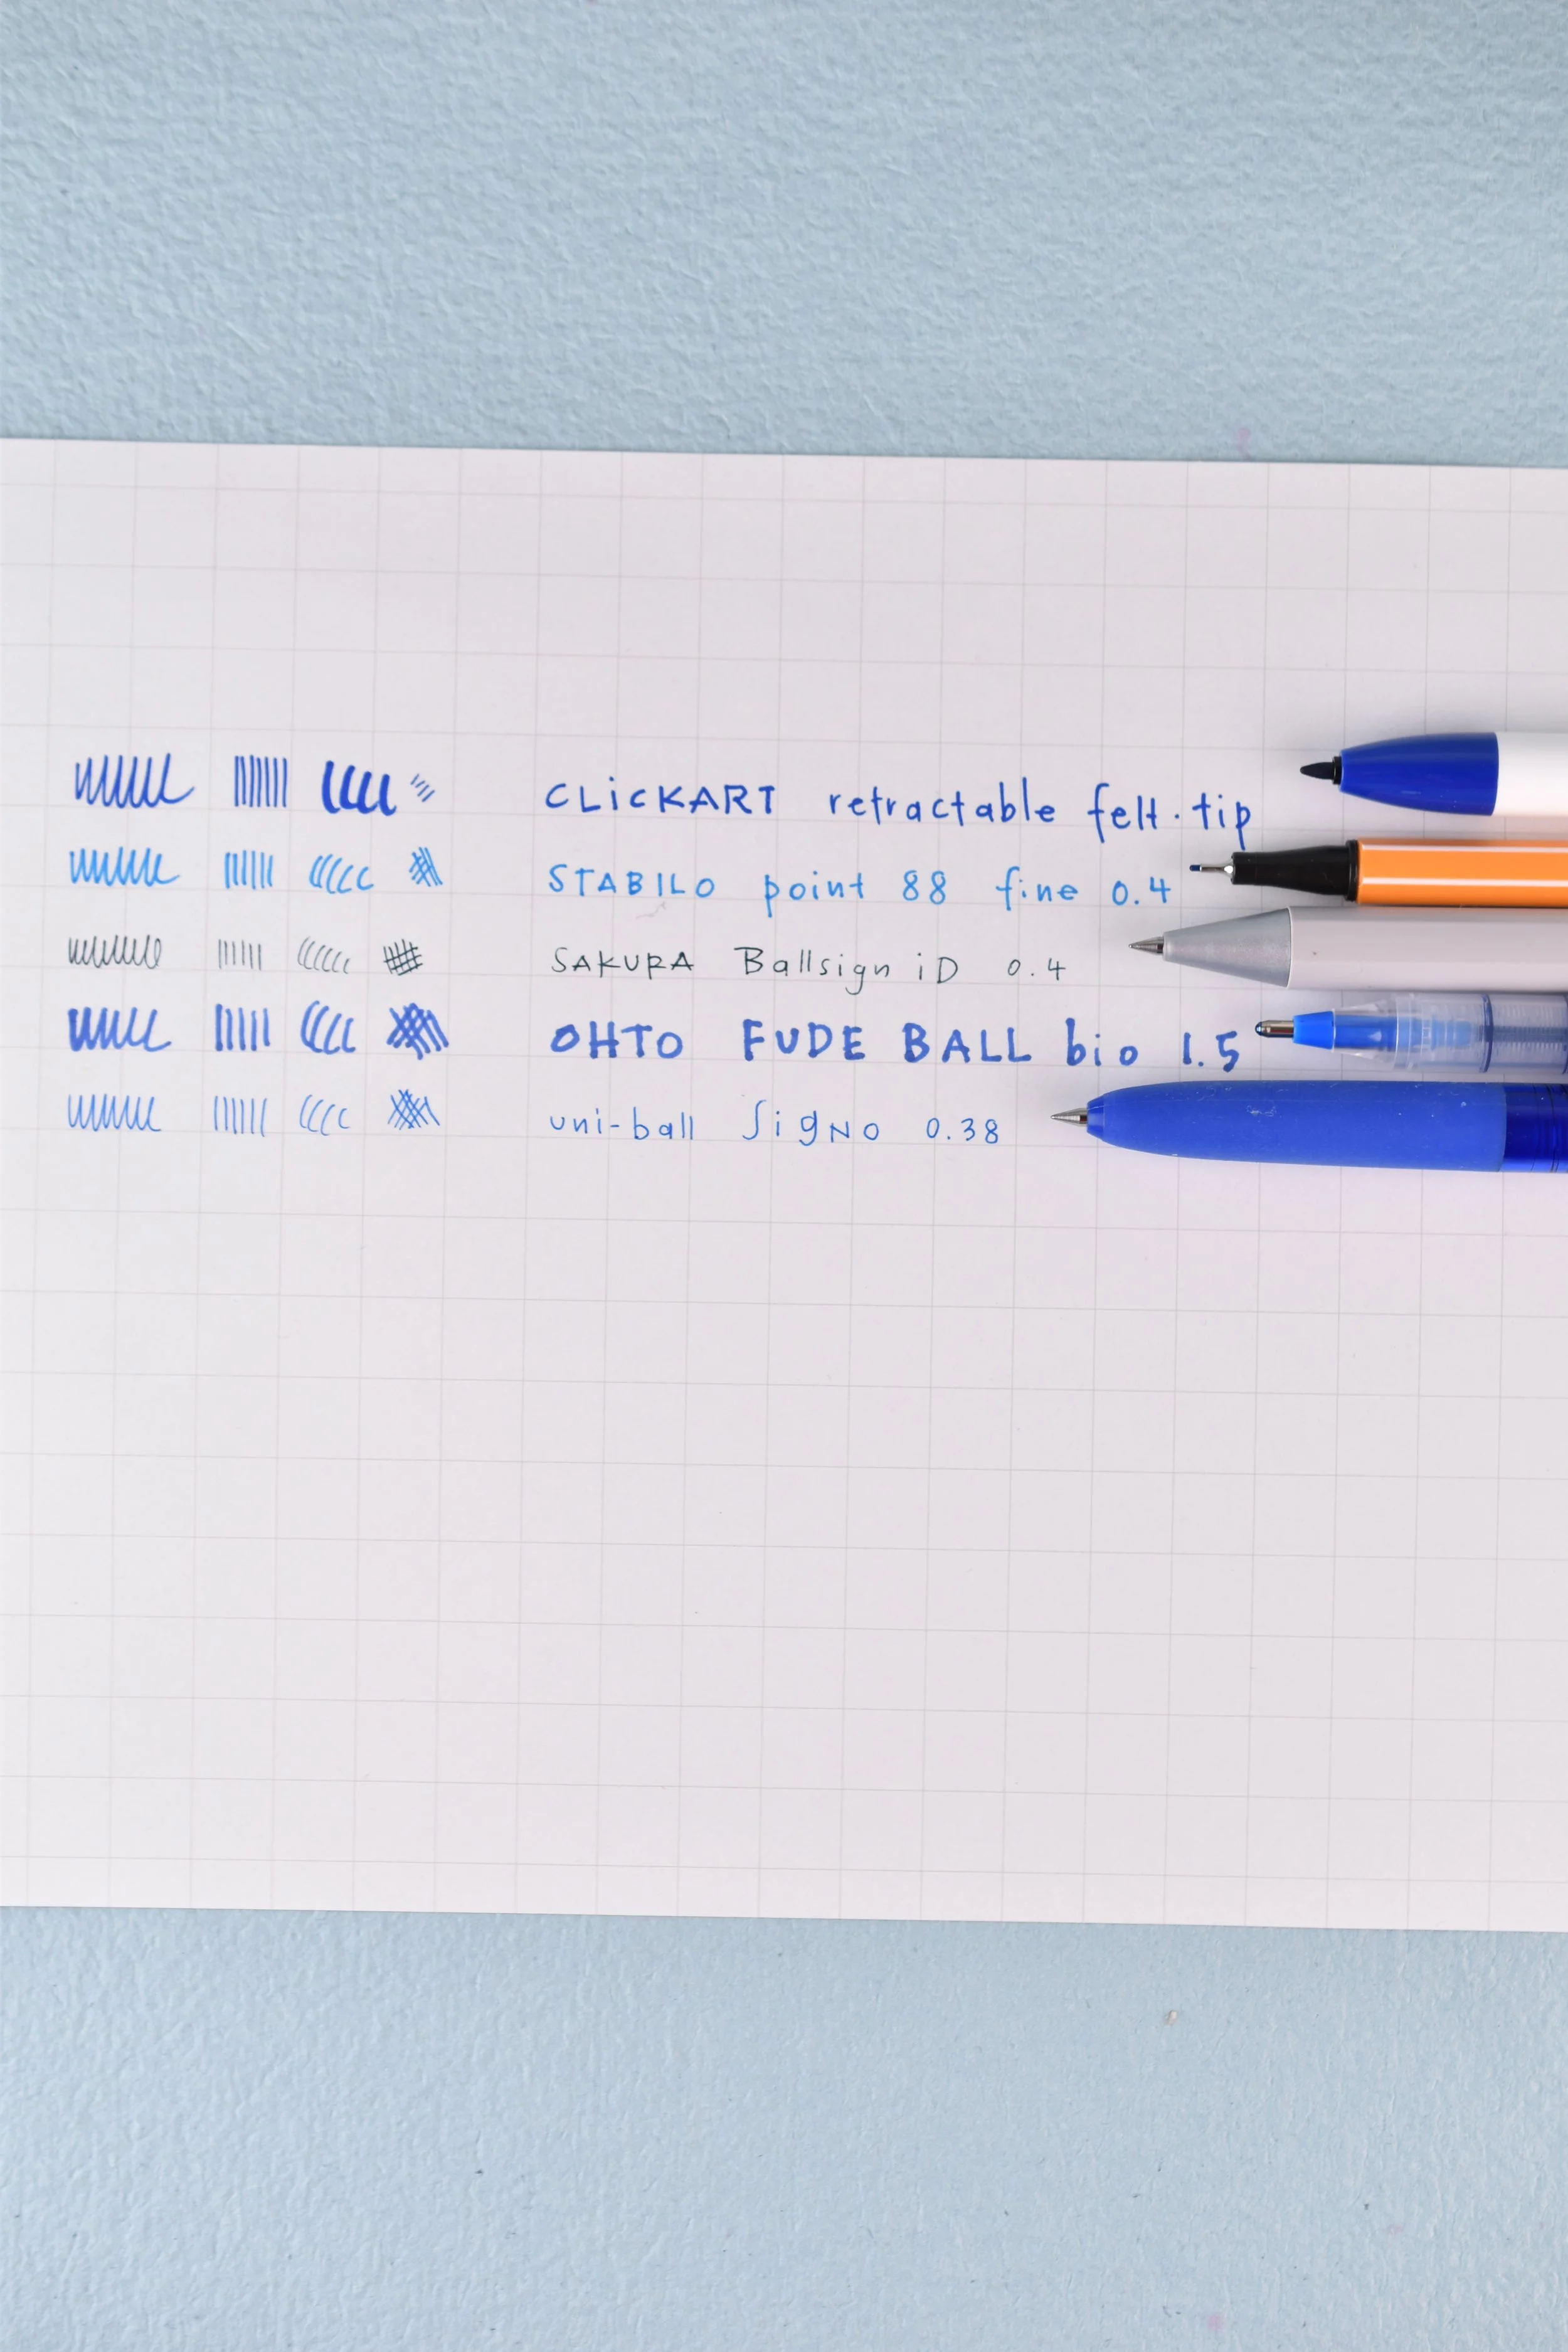 CLiCKART retractable felt·tip
STABILO point 88 fine 0.4
SAKURA Ballsign iD 0.4
OHTO FUDE BALL bio 1.5
uni-ball SigNO 0.38